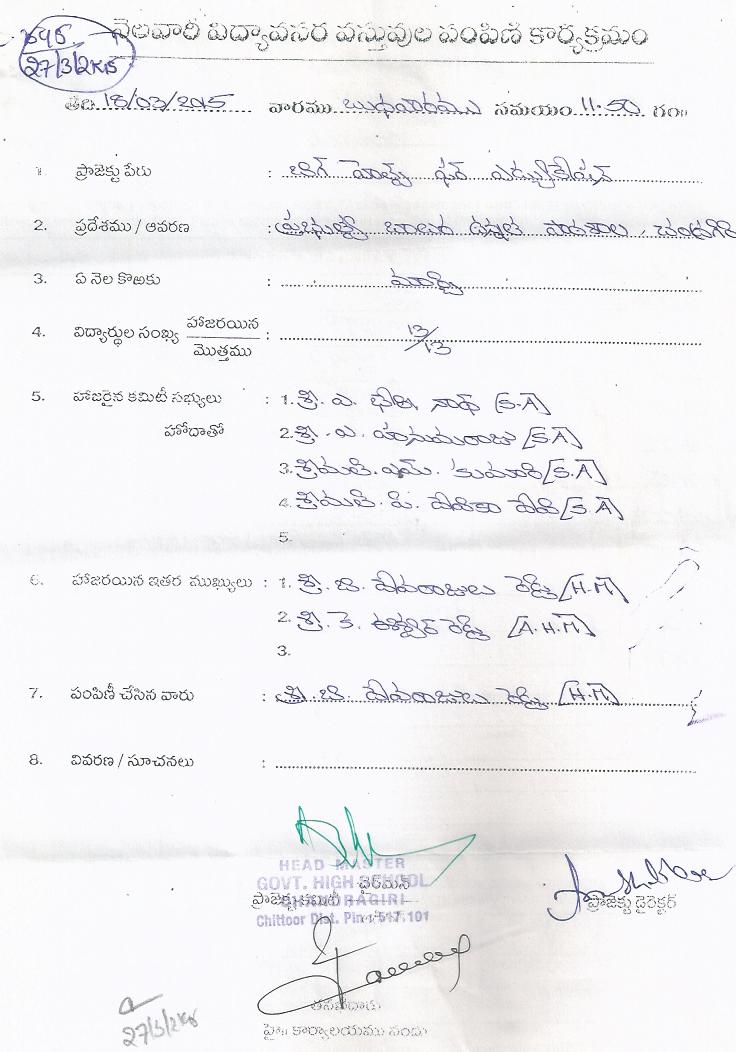 545
27/3/2K15
నెలవారీ విద్యావసర వస్తువుల పంపిణీ కార్యక్రమం
తేది 18/03/2015 వారము బుధవారము సమయం 11.50 గం॥
1. ప్రాజెక్టు పేరు : బిగ్ హెల్ప్ ఫర్ ఎడ్యుకేషన్
2. ప్రదేశము / ఆవరణ : ప్రభుత్వ బాలుర ఉన్నత పాఠశాల, చంద్రగిరి
3. ఏ నెల కొఱకు : మార్చి
4. విద్యార్థుల సంఖ్య హాజరయిన / మొత్తము : 13/13
5. హాజరైన కమిటీ సభ్యులు : 1. శ్రీ. ఎ. నాథ్ (S.A)
హోదాతో 2. శ్రీ. ఎ. హనుమరాజు [S.A]
3. శ్రీమతి. ఎమ్. కుమారి [S.A]
4. శ్రీమతి. పి. దేవి [S.A]
5.
6. హాజరయిన ఇతర ముఖ్యులు : 1. శ్రీ. బి. దేవరాజులు రెడ్డి [H.M]
2. శ్రీ. కె. ఈశ్వర్ రెడ్డి [A.H.M]
3.
7. పంపిణీ చేసిన వారు : శ్రీ. బి. దేవరాజులు రెడ్డి [H.M]
8. వివరణ / సూచనలు :
HEAD MASTER
GOVT. HIGH SCHOOL
ఛైర్మన్
CHANDRAGIRI
ప్రాజెక్టు కమిటీ
ప్రాజెక్టు డైరెక్టర్
Chittoor Dist. Pin : 517 101
తనిఖీదారు
27/3/2K15
హై॥ కార్యాలయము నందు